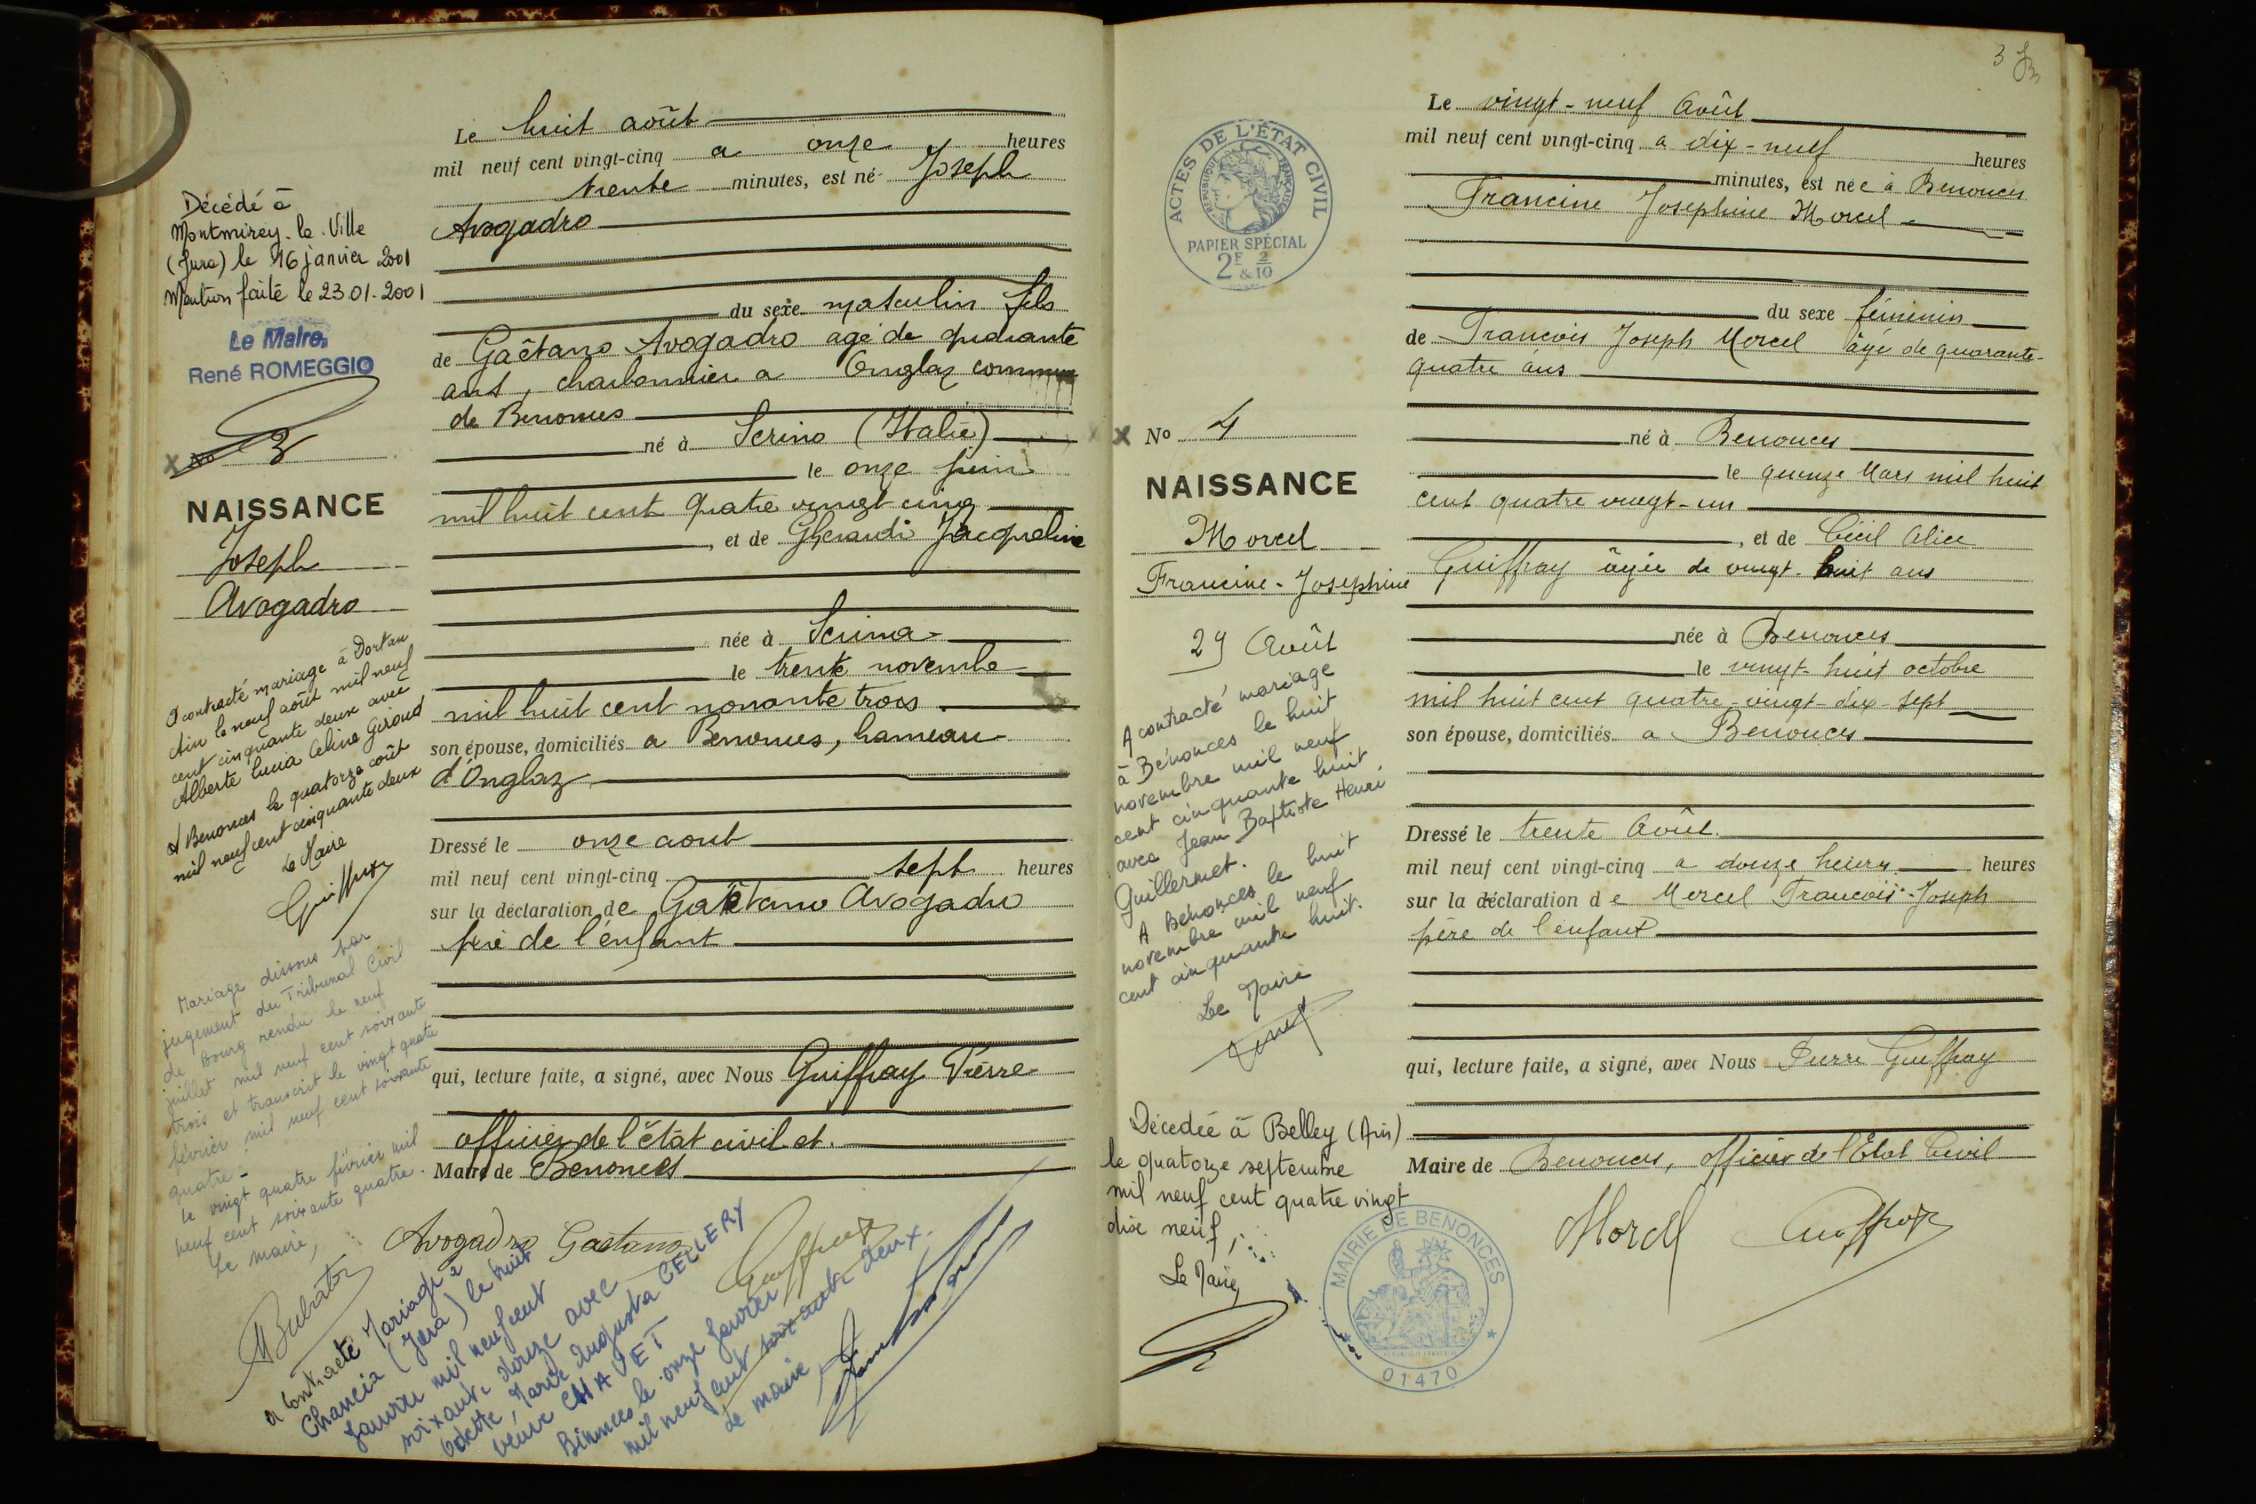 Le huit août
mil neuf cent vingt-cinq a onze heures
trente minutes, est né Joseph
Avogadro
du sexe masculin fils
de Gaëtano Avogadro agé de quarante
ans, charbonnier a Onglaz commune
de Benonces
né à Serino (Italie)
le onze juin
mil huit cent quatre vingt cinq
, et de Gherardi Jacqueline
née à
le trente novembre
mil huit cent nonante trois
son épouse, domiciliés a Benonces, hameau
d'Onglaz
Dressé le onze aout
mil neuf cent vingt-cinq sept heures
sur la déclaration de Gaëtano Avogadro
père de l'enfant
qui, lecture faite, a signé, avec Nous Guiffray Pierre
officier de l'état civil et
Maire de Benonces
Avogadro Gaetano
Décédé à
Montmirey-la-Ville
(Jura) le 16 janvier 2001
Mention faite le 23.01.2001
Le Maire,
René ROMEGGIO
No 3
NAISSANCE
Joseph
Avogadro
A contracté mariage à Dortan
Ain le neuf août mil neuf
cent cinquante deux avec
Alberte Lucia Celina Giroud
A Benonces le quatorze août
mil neuf cent cinquante deux
Le Maire
Guiffray
Mariage dissous par
jugement du Tribunal Civil
de Bourg rendu le neuf
juillet mil neuf cent soixante
trois et transcrit le vingt quatre
février mil neuf cent soixante
quatre -
le vingt quatre février mil
neuf cent soixante quatre.
Le maire,
a contracté Mariage à
Chancia (Jura) le huit
Janvier mil neuf cent
soixante douze avec
Odette, Marie Augusta CELLERY
veuve CHAVET
Benonces le onze Janvier
mil neuf cent soixante deux.
Le maire
3
ACTES DE L'ÉTAT CIVIL
RÉPUBLIQUE FRANÇAISE
PAPIER SPÉCIAL
2F & 2/10
No 4
NAISSANCE
Morcel
Francine-Josephine
29 Août
A contracté mariage
à Bénonces le huit
novembre mil neuf
cent cinquante huit
avec Jean Baptiste Henri
Guillermet.
A Bénonces le huit
novembre mil neuf
cent cinquante huit.
Le Maire
Décédée à Belley (Ain)
le quatorze septembre
mil neuf cent quatre vingt
dix neuf,
Le Maire
Le vingt-neuf Août
mil neuf cent vingt-cinq a dix-neuf heures
minutes, est née à Benonces
Francine Josephine Morcel
du sexe féminin
de Francois Joseph Morcel âgé de quarante-
quatre ans
né à Benonces
le quinze Mars mil huit
cent quatre vingt-un
, et de Cécil Alice
Guiffray âgée de vingt-huit ans
née à Benonces
le vingt-huit octobre
mil huit cent quatre-vingt-dix-sept
son épouse, domiciliés a Benonces
Dressé le trente Août
mil neuf cent vingt-cinq a douze heures heures
sur la déclaration de Morcel Francois-Joseph
père de l'enfant
qui, lecture faite, a signé, avec Nous Pierre Guiffray
Maire de Benonces, officier de l'Etat Civil
Morcel Guiffray
MAIRIE DE BENONCES
01470